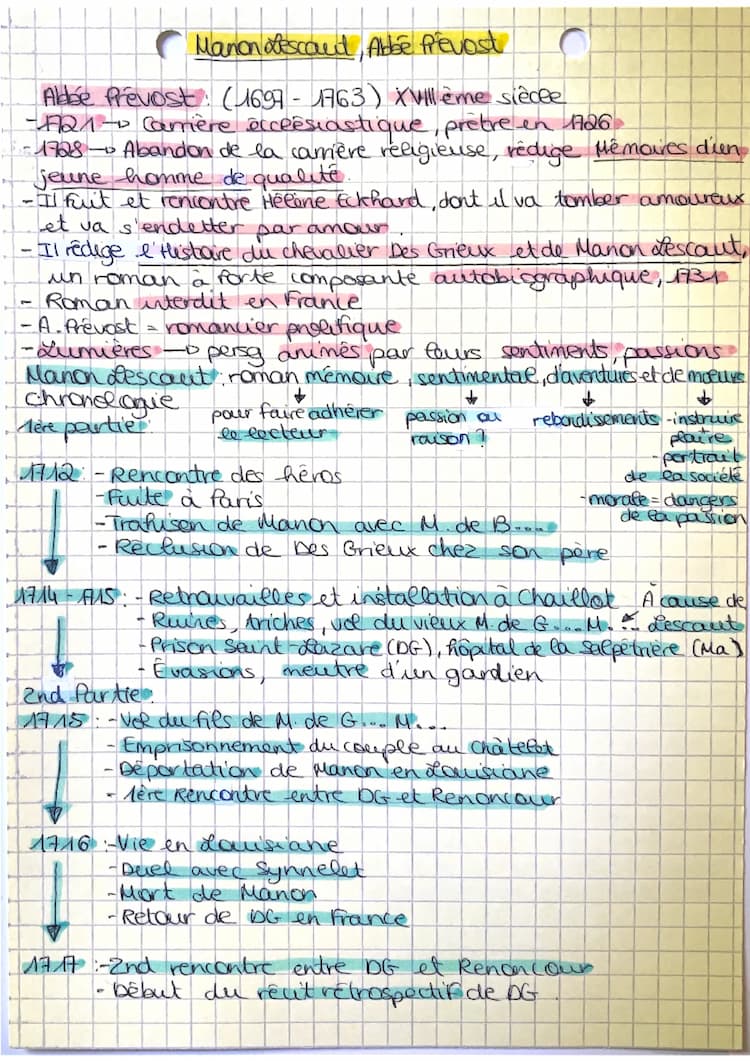 Manon Lescaut, Abbé Prévost
Abbé Prévost : (1697 - 1763) XVIIIème siècle
- 1721 → Carrière ecclésiastique, prêtre en 1726
- 1728 → Abandon de la carrière religieuse, rédige Mémoires d'un
jeune homme de qualité.
- Il fuit et rencontre Hélène Eckhard, dont il va tomber amoureux
et va s'endetter par amour.
- Il rédige l'Histoire du chevalier Des Grieux et de Manon Lescaut,
un roman à forte composante autobiographique, 1731
- Roman interdit en France
- A. Prévost = romancier prolifique
- Lumières → persg animés par leurs sentiments, passions
Manon Lescaut : roman mémoire, sentimental, d'aventures et de mœurs
↓ ↓ ↓ ↓
Chronologie
pour faire adhérer le lecteur
passion ou raison ?
rebondissements
- instruire
plaire
- portrait
de la société
- morale = dangers
de la passion
1ère partie :
1712 : - Rencontre des héros
- Fuite à Paris
- Trahison de Manon avec M. de B....
- Réclusion de Des Grieux chez son père
1714 - 1715 : - Retrouvailles et installation à Chaillot
- Ruines, triches, vol du vieux M. de G.... M. ..
À cause de
Lescaut
- Prison Saint-Lazare (DG), hôpital de la Salpêtrière (Ma)
- Évasions, meutre d'un gardien
2nd Partie :
1715 : - Vol du fils de M. de G... M...
- Emprisonnement du couple au Châtelet
- Déportation de Manon en Louisiane
- 1ère Rencontre entre DG et Renoncour
1716 : - Vie en Louisiane
- Duel avec Synnelet
- Mort de Manon
- Retour de DG en France
1717 : - 2nd rencontre entre DG et Renoncour
- Début du récit rétrospectif de DG.